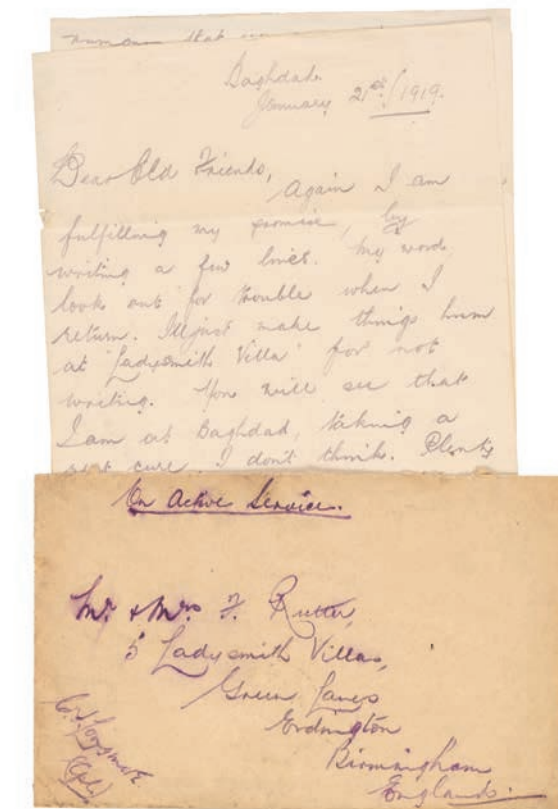 that
Baghdad.
January 21st/1919.
Dear Old Friends,
Again I am
fulfilling my promise, by
writing a few lines. My word,
look out for trouble when I
return. I'll just make things hum
at "Ladysmith Villa" for not
writing. You will see that
I am at Baghdad, taking a
rest cure, I don't think. Plenty
On Active Service.
Mr. & Mrs F. Rutter,
5 Ladysmith Villas,
Green Lanes
Erdington
Birmingham
England.
(Cpl)